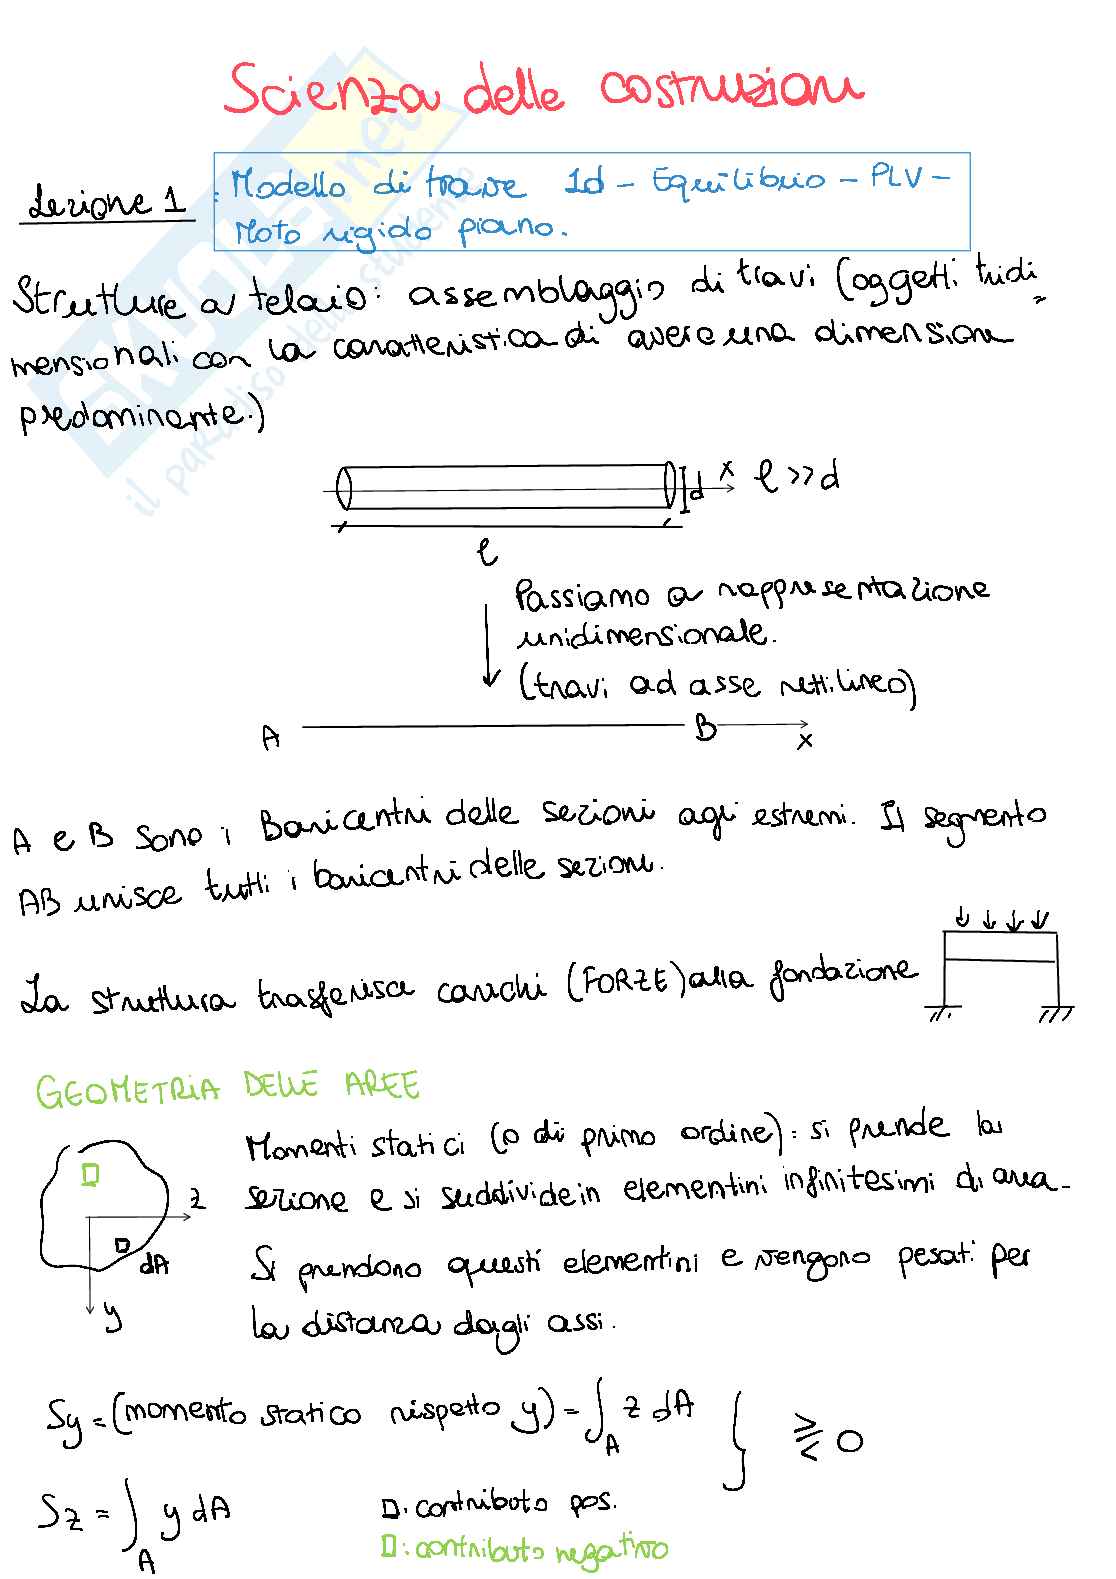 Scienza delle costruzioni
Lezione 1 : Modello di trave 1d - Equilibrio - PLV -
Moto rigido piano.
Strutture a telaio: assemblaggio di travi (oggetti tridi
mensionali con la caratteristica di avere una dimensione
predominante.)
d x l >> d
l
Passiamo a rappresentazione
unidimensionale.
(travi ad asse rettilineo)
A B x
A e B sono i Baricentri delle sezioni agli estremi. Il segmento
AB unisce tutti i baricentri delle sezioni.
La struttura trasferisce carichi (FORZE) alla fondazione
GEOMETRIA DELLE AREE
Momenti statici (o di primo ordine): si prende la
sezione e si suddivide in elementini infinitesimi di area.
Si prendono questi elementini e vengono pesati per
la distanza dagli assi.
z
dA
y
Sy = (momento statico rispetto y) = ∫A z dA } ⪌ 0
Sz = ∫A y dA
□: contributo pos.
□: contributo negativo
SKUOLA.net
il paradiso dello studente